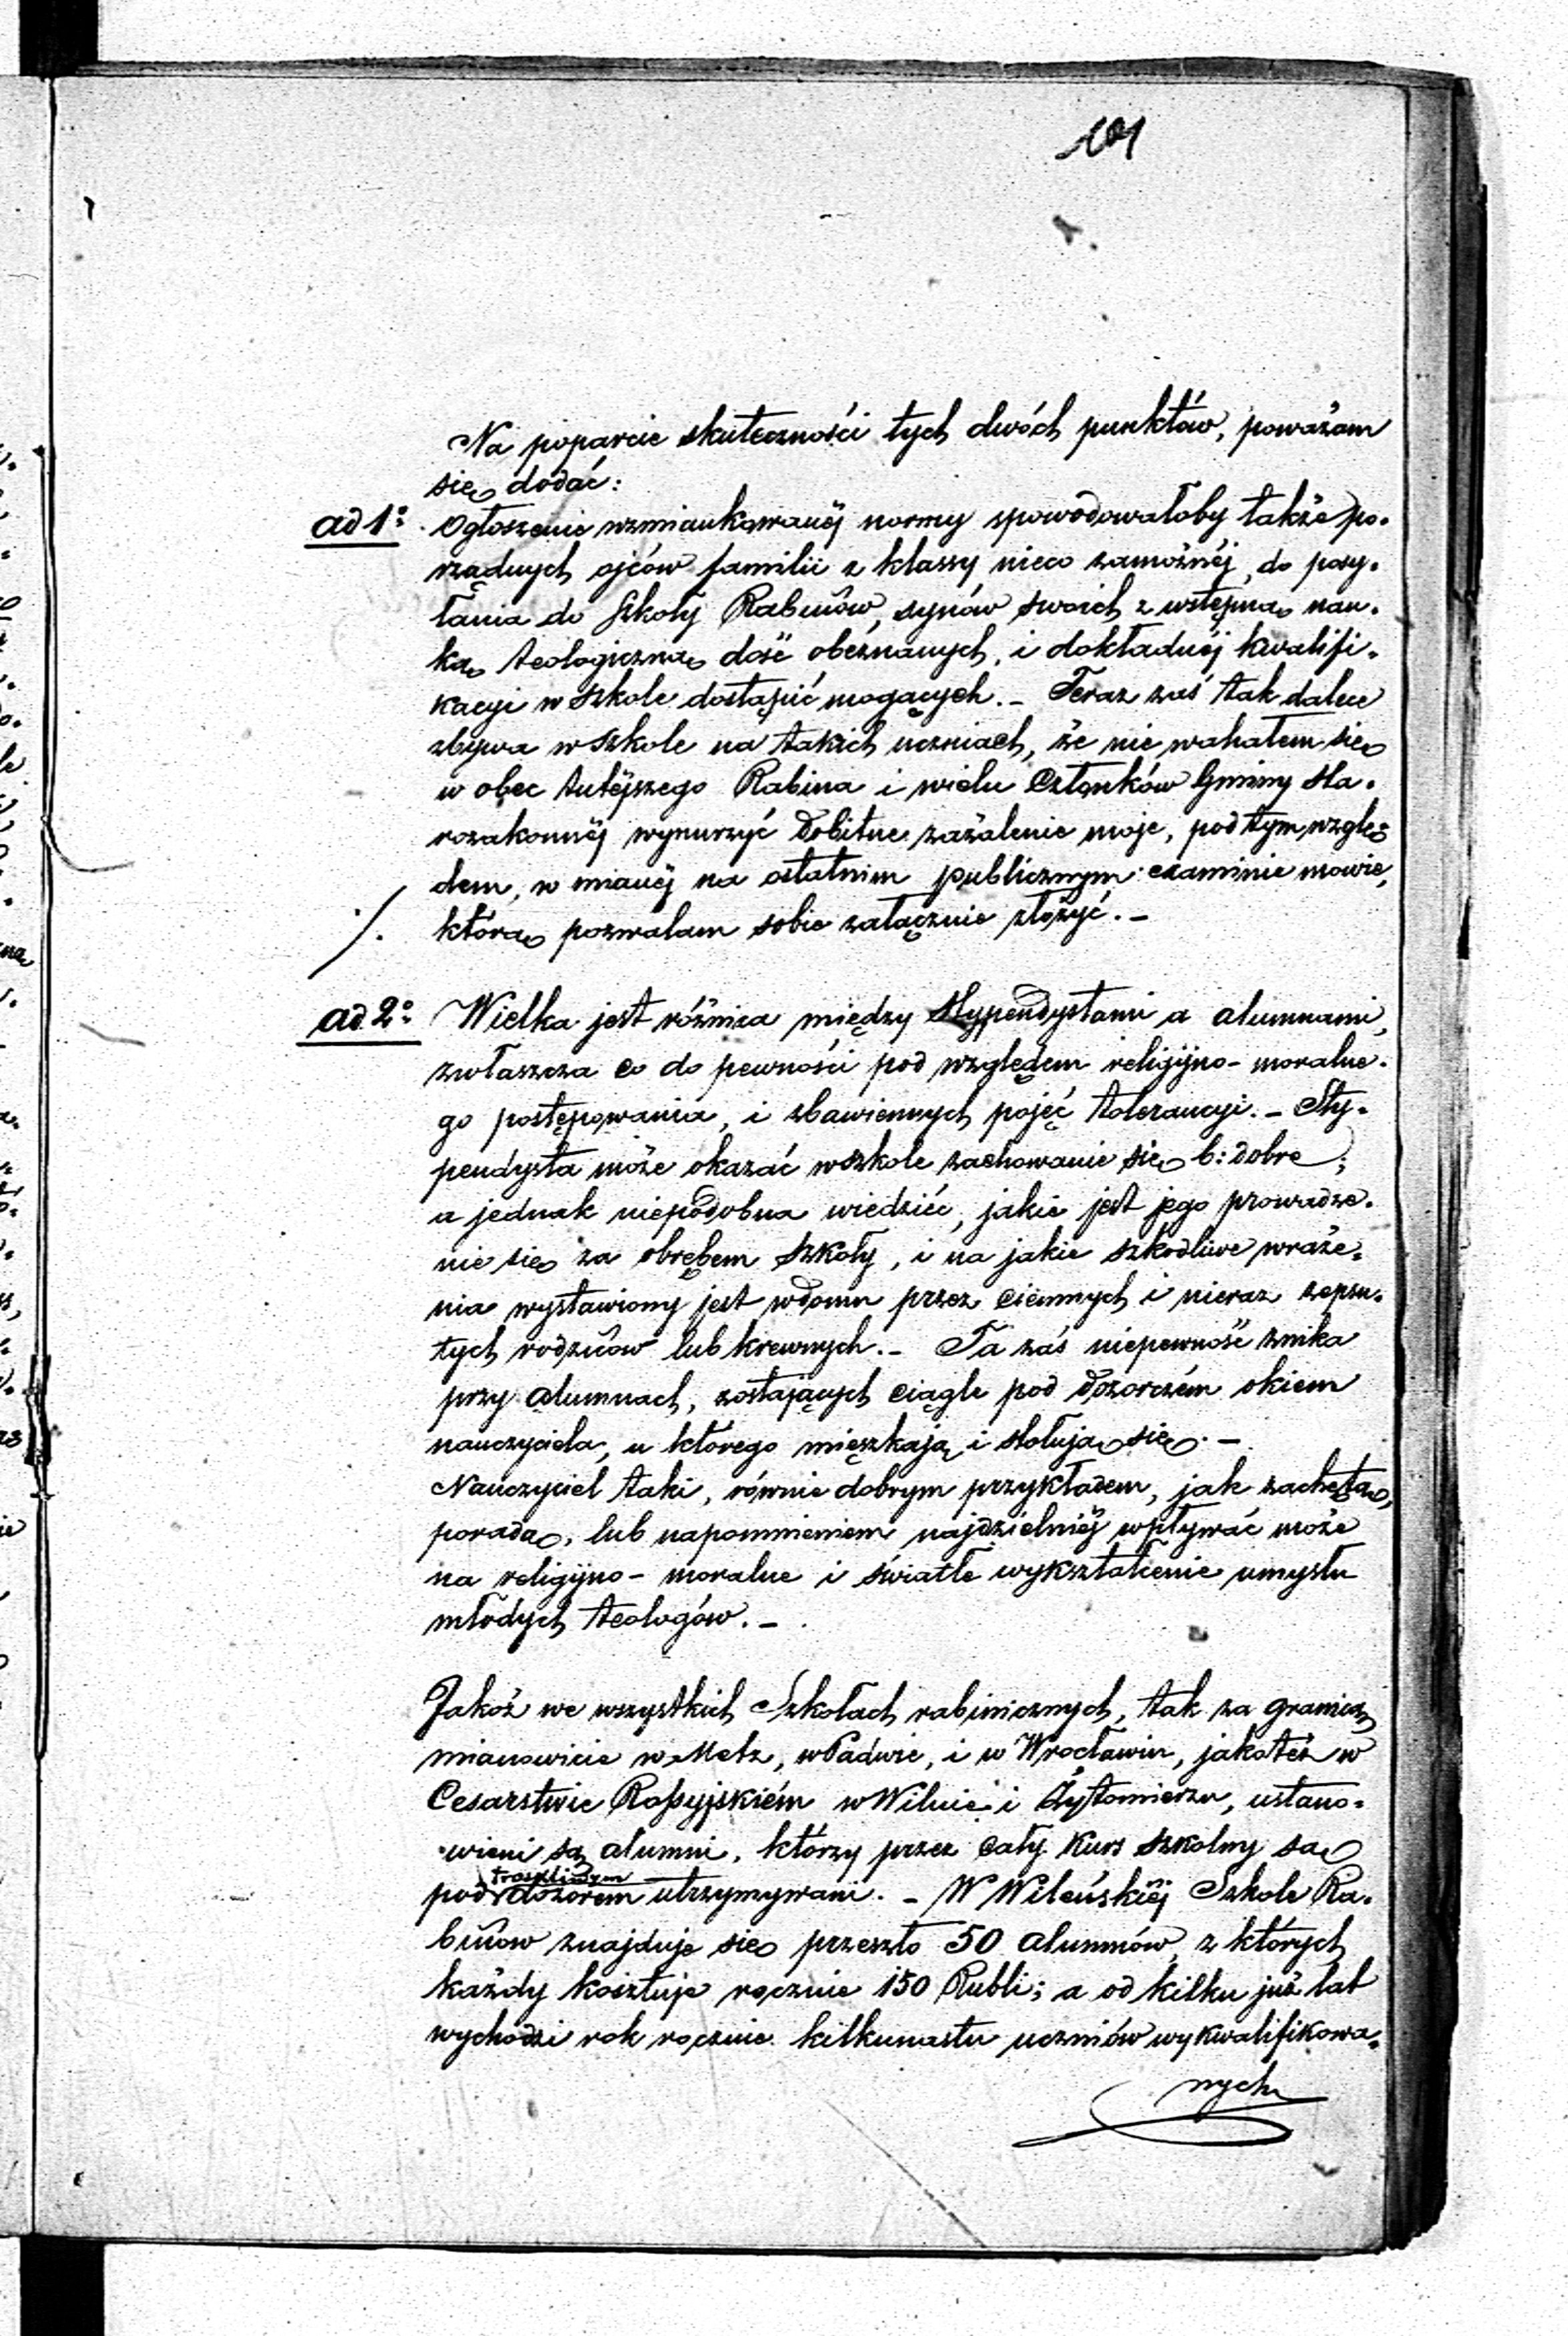 101
Na poparcie skuteczności tych dwóch punktów, poważam
się dodać:
ad 1o: Ogłoszenie wzmiankowanéj normy spowodowałoby także po-
rządnych ojców familii z klassy nieco zamożnéj, do posy-
łania do Szkoły Rabinów, synów swoich z wstępną nau-
ką teologiczną dość obeznanych, i dokładnéj kwalifi-
kacyi w szkole dostąpić mogących. - Teraz zaś tak dalece
zbywa w szkole na takich uczniach, że nie wahałem się
w obec tutéjszego Rabina i wielu Członków Gminy Sta-
rozakonnéj wynurzyć dobitne zażalenie moje, pod tym wzglę-
dem, w mianéj na ostatnim publicznym examinie mowie,
./. którą pozwalam sobie załącznie złożyć. -
ad 2o: Wielka jest różnica między Stypendystami a alumnami,
zwłaszcza co do pewności pod względem religijno-moralne-
go postępowania, i zbawiennych pojęć tolerancyi. - Sty-
pendysta może okazać w szkole zachowanie się b: dobre;
a jednak niepodobna wiedzieć, jakie jest jego prowadze-
nie się za obrębem szkoły, i na jakie szkodliwe wraże-
nia wystawiony jest w domu przez ciemnych i nieraz zepsu-
tych rodziców lub krewnych. - Ta zaś niepewność znika
przy alumnach, zostających ciągle pod dozorczém okiem
nauczyciela, u którego mięszkają i stołują się. -
Nauczyciel taki, równie dobrym przykładem, jak zachętą,
poradą, lub napomnieniem najdzielniéj wpływać może
na religijno-moralne i światłe wykształcenie umysłu
młodych teologów. -
Jakoż we wszystkich Szkołach rabinicznych, tak za granicą
mianowicie w Metz, w Padwie, i w Wrocławiu, jakotéż w
Cesarstwie Rossyjskiém w Wilnie i Żytomierzu, ustano-
wieni są alumni, którzy przez cały kurs szkolny są
troskliwym
pod dozorem utrzymywani. - W Wileńskiéj Szkole Ra-
binów znajduje się przeszło 50 alumnów, z których
każdy kosztuje rocznie 150 Rubli; a od kilku już lat
wychodzi rok rocznie kilkunastu uczniów wykwalifikowa-
nych